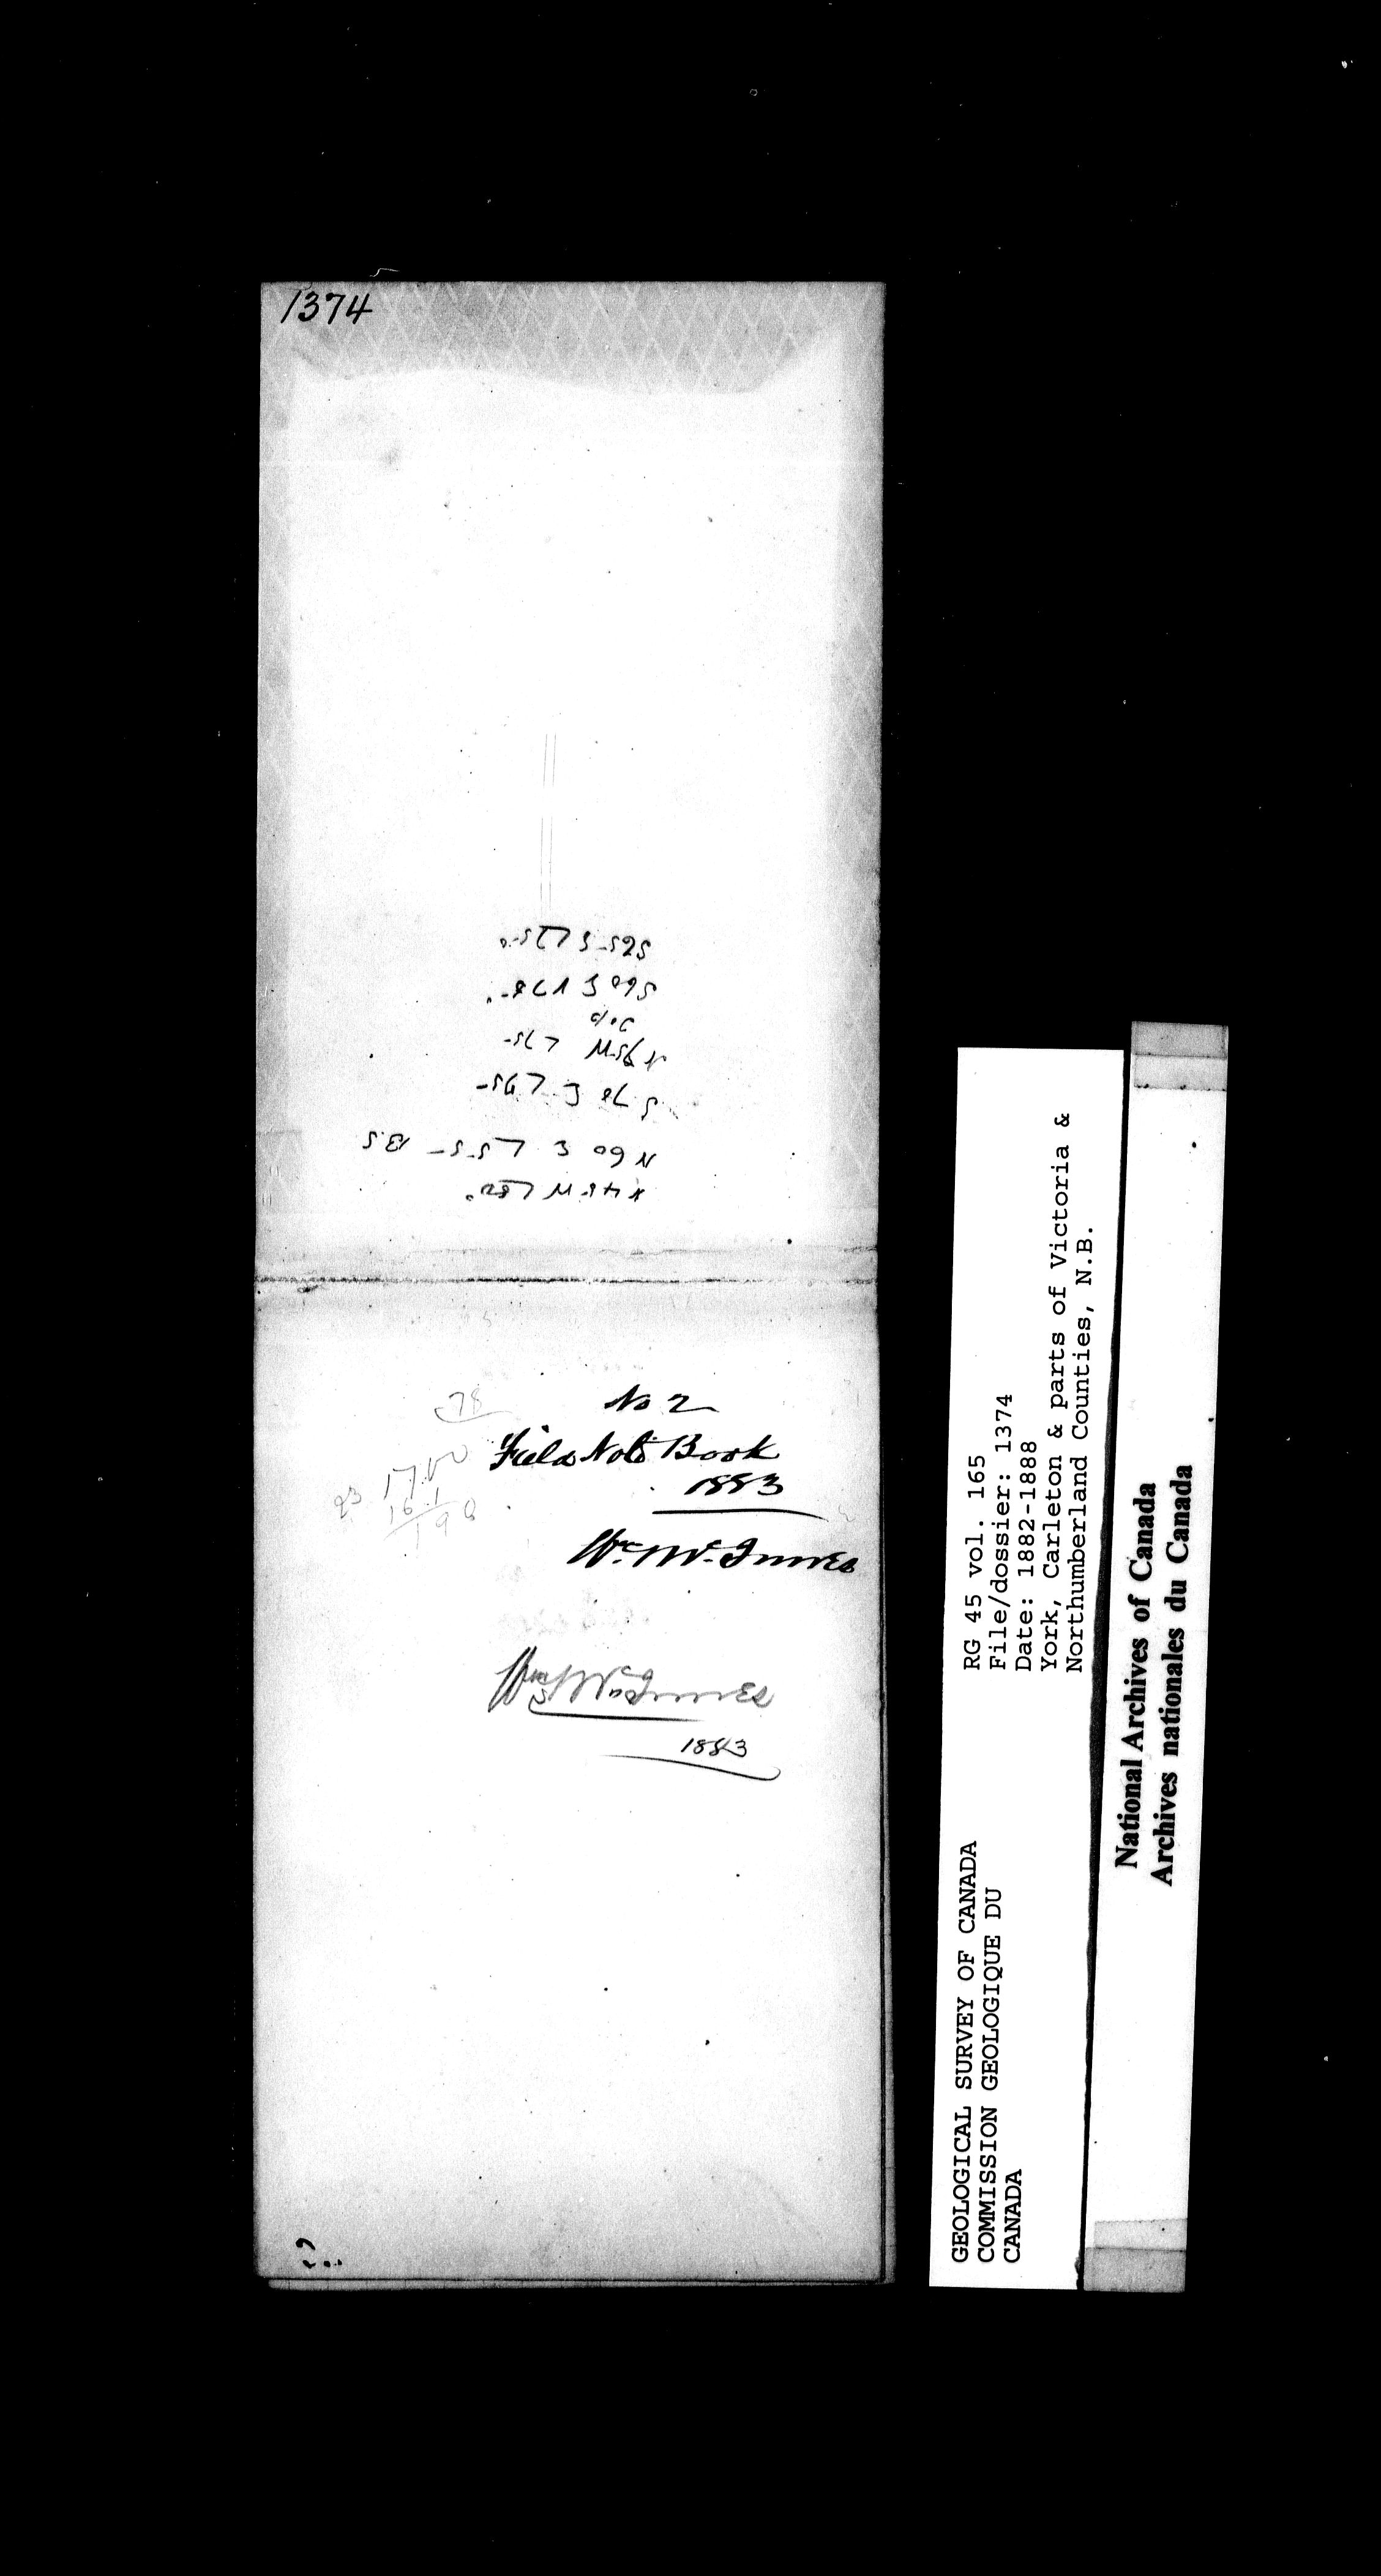 1374
N 48 W L 80°
N 60 E L 55 - B.S
S 78 E L 75-
N 75 W L 75-
S 60 E L 78-°
S 65 E L 75-°
78
No 2
Field Note Book
1883
1700
93
Wm McInnes
Wm McInnes
1883
GEOLOGICAL SURVEY OF CANADA
COMMISSION GEOLOGIQUE DU
CANADA
RG 45 vol. 165
File/dossier: 1374
Date: 1882-1888
York, Carleton & parts of Victoria &
Northumberland Counties, N.B.
National Archives of Canada
Archives nationales du Canada